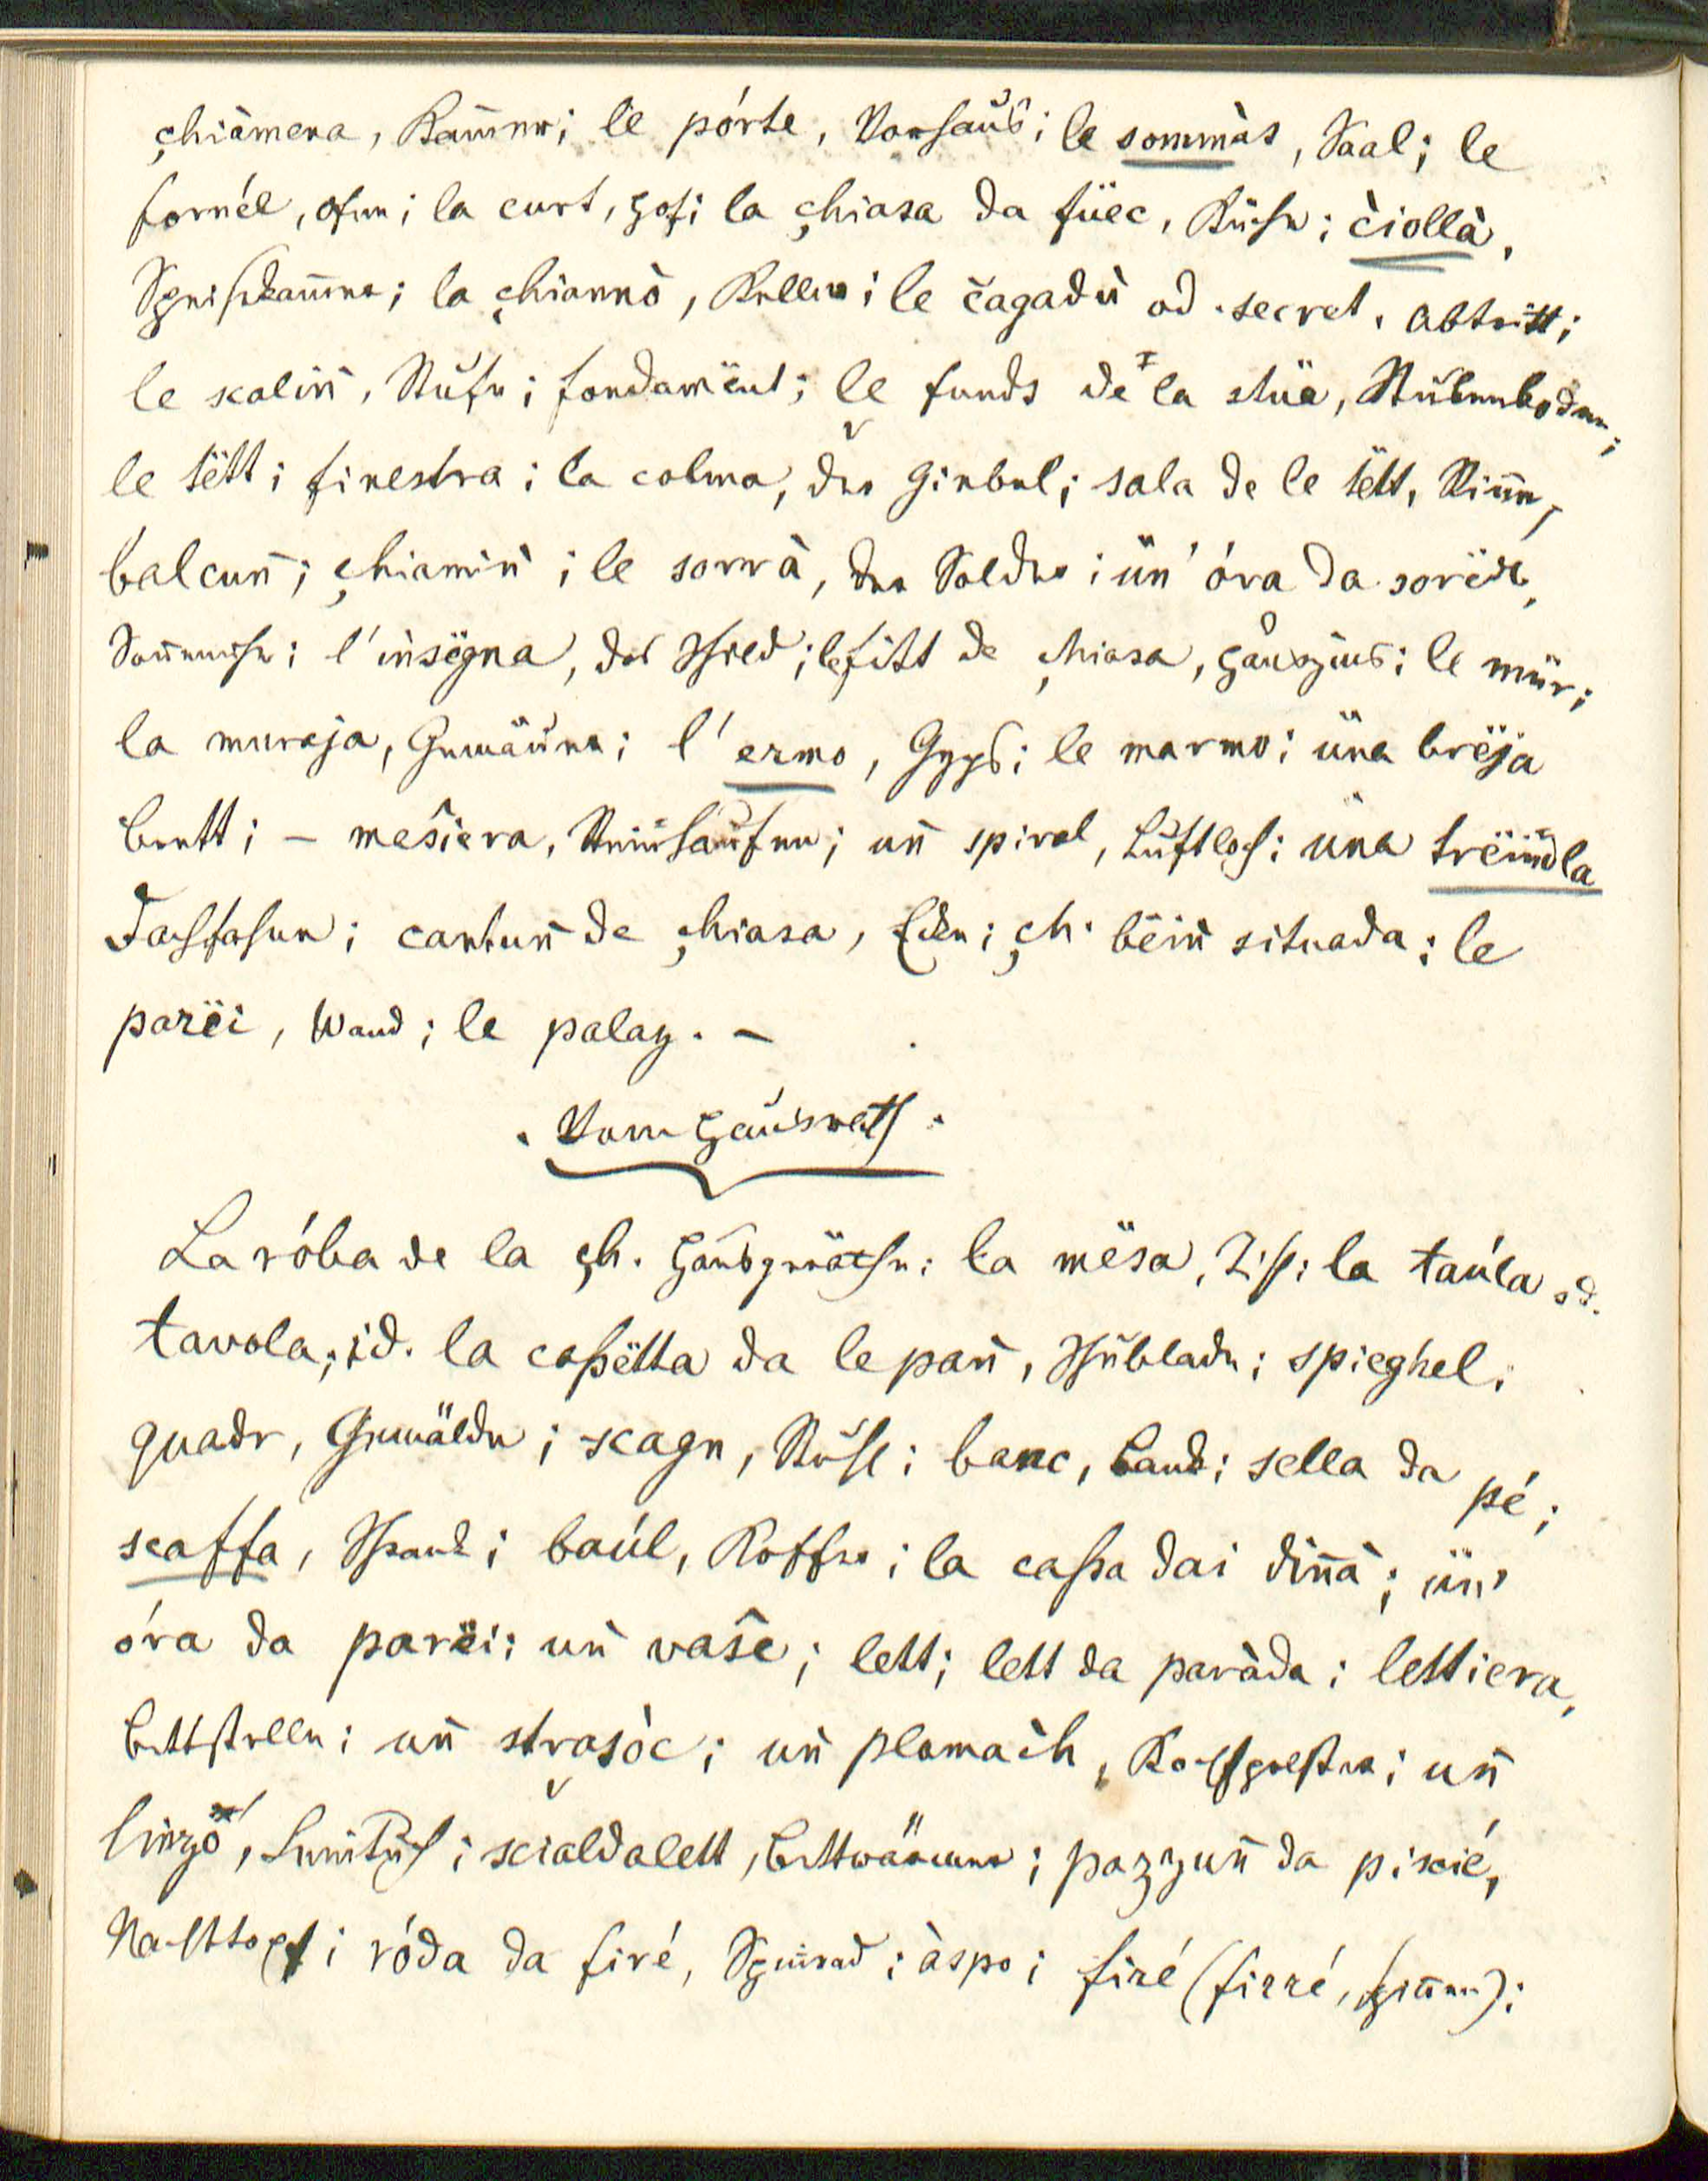 çhiàmena, Kam̄er; le pórte, Vorhaus; le sommàs, Saal; le
fornél, Ofen; la curt, Hof; la çhiasa da füec, Küche; čiollà,
Speiskam̄er; la çhiannò, Keller; le čagadù od. secret, Abtritt;
le scalin̄, Stufe; fondamënt; le funds de la stüa, Stubenboden;
le tëtt; finestra; la colma, der Giebel; sala de le tëtt,
balcun̄; çhiamin̄; le sorrà, der Solder; ün' óra da sorëdl,
Son̄enuhr; l'insëgna, das Schild; le fitt de çhiasa, Hauszins; le mür;
la muraja, Gemäuer; l'ermo, Gyps; le marmo; üna brëja
Brett; – mešiera, Steinhaufen; un̄ spiral, Luftloch; üna trëm̄dla
Dachfaser; cantun̄ de çhiasa, Ecke; çh. bëin̄ situada; le
parëi, Wand; le palaz. –
Vom Hausrath.
La róba de la çh. Hausgeräthe; la mësa, Tisch; la taúla od.
tavola, id. la caßëtta da le pan̄, Schublade; spieghel;
quadr, Gemälde; scagn, Stuhl; banc, Bank; sella da pé;
scaffa, Schrank; baúl, Koffer; la caßa dai din̄à; ün'
óra da parëi; un̄ vaŝe; lett; lett da paràda; lettiera,
Bettstelle; un̄ strasòc; un̄ plomaćh, Kopfpolster; un̄
linzó, Leintuch; scialdalett, Bettwärmer; pazzun̄ da piscié,
Nachttopf; róda da firé, Spinrad; àspo; firé (firré, spin̄en);